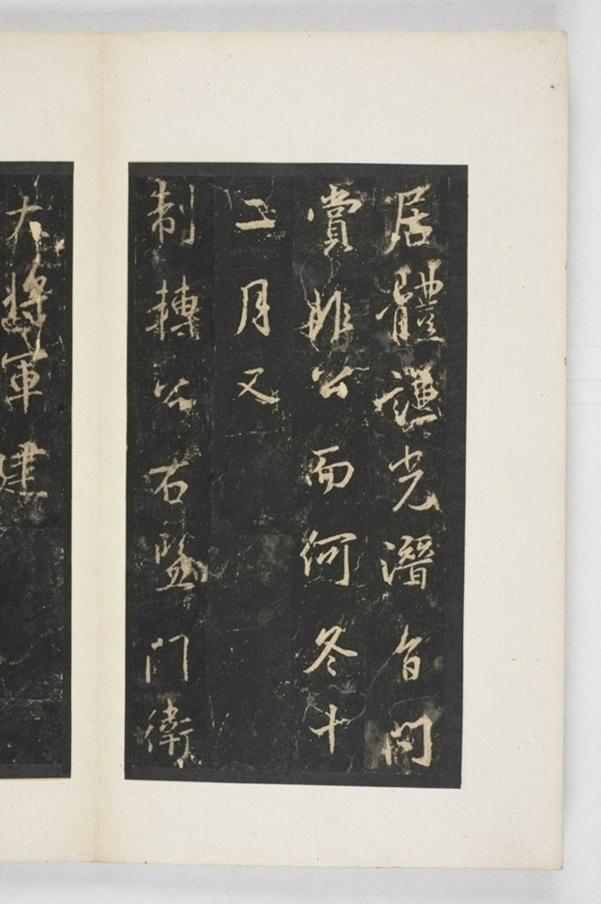 居體謙光潛旨問
賞非公而何冬十
二月又
制轉公右監門衛
大將軍建